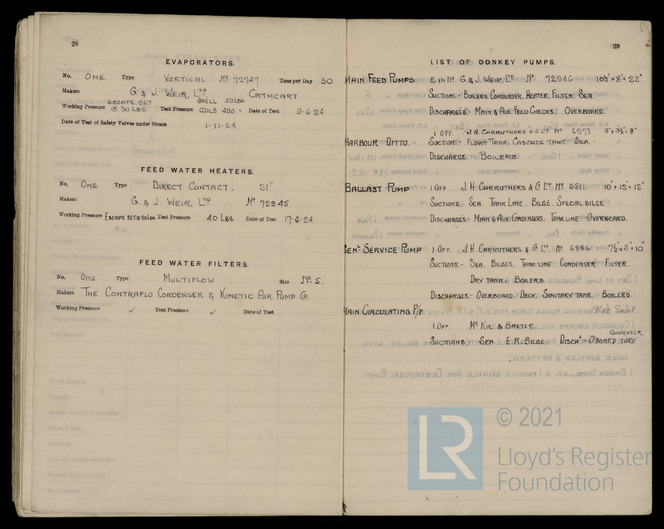 28
EVAPORATORS.
No. ONE Type VERTICAL No 72747 Tons per Day 30
Makers G & J. WEIR, LTD CATHCART
ESCAPE SET SHELL 50 LBS
Working Pressure @ 30 LBS. Test Pressure COILS 400 " Date of Test 9-6-24
Date of Test of Safety Valves under Steam 1-11-24
FEED WATER HEATERS.
No. ONE Type DIRECT CONTACT. 21"
Makers G. & J. WEIR, LTD No 72945
Working Pressure ESCAPE SET@ LBS Test Pressure 40 LBS. Date of Test 17-6-24.
FEED WATER FILTERS.
No. ONE Type MULTIFLOW Size No 5.
Makers THE CONTRAFLO CONDENSER & KINETIC AIR PUMP Co
Working Pressure ✓ Test Pressure ✓ Date of Test
29
LIST OF DONKEY PUMPS.
MAIN FEED PUMPS 2 IN No. G & J. WEIR, LTD No 72946 10½" × 8" × 22"
SUCTIONS:- BOILERS. CONDENSER. HEATER. FILTER. SEA.
DISCHARGES:- MAIN & AUX. FEED CHECKS. OVERBOARD.
1 OFF. J. H. CARRUTHERS & Co LTD No 6973 5" × 3½" × 8"
HARBOUR DITTO. SUCTION:- FLOAT TANK. CASCADE TANK. SEA.
DISCHARGE BOILERS
BALLAST PUMP 1 OFF. J. H. CARRUTHERS & Co LTD. No 6811. 10" × 12" × 12"
SUCTIONS:- SEA. TANK LINE. BILGE. SPECIAL BILGE
DISCHARGES:- MAIN & AUX. CONDENSERS. TANK LINE. OVERBOARD.
GENL SERVICE PUMP 1 OFF. J. H. CARRUTHERS & Co LTD. No 6886 7½" × 5" × 10"
SUCTIONS:- SEA. BILGES. TANK LINE. CONDENSER. FILTER
DRY TANK & BOILERS
DISCHARGES:- OVERBOARD. DECK. SANITARY TANK. BOILERS
MAIN CIRCULATING P/P.
1 OFF. McKIE & BAXTER.
CONDENSER
SUCTIONS:- SEA E.R. BILGE DISCH:- O'BOARD THRO'
© 2021
LR
Lloyd's Register
Foundation